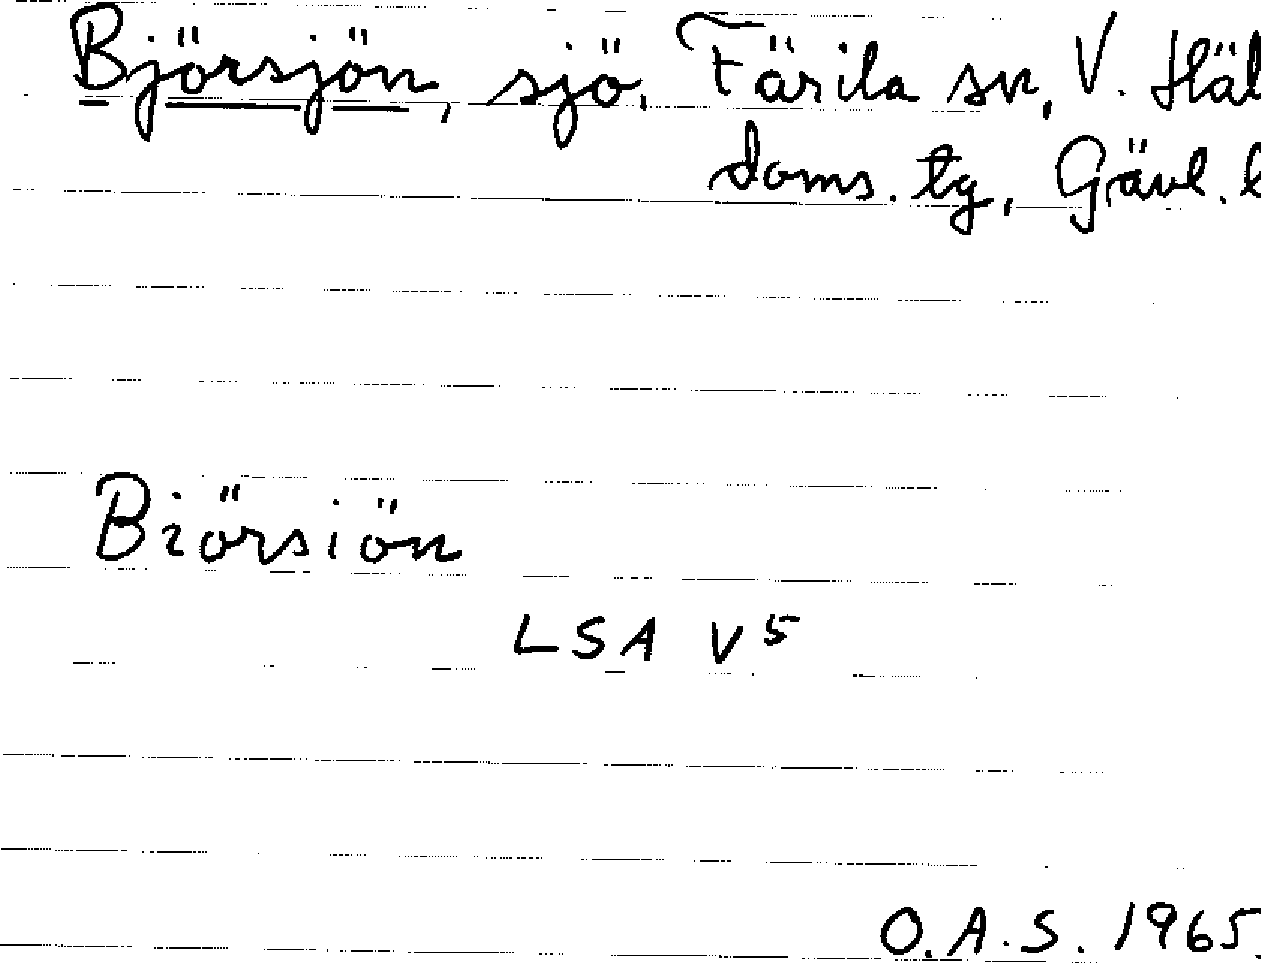 Björsjön, sjö, Färila sn, V. Häl
doms. tg, Gävl. l
Biörsiön
LSA V5
O.A.S. 1965.